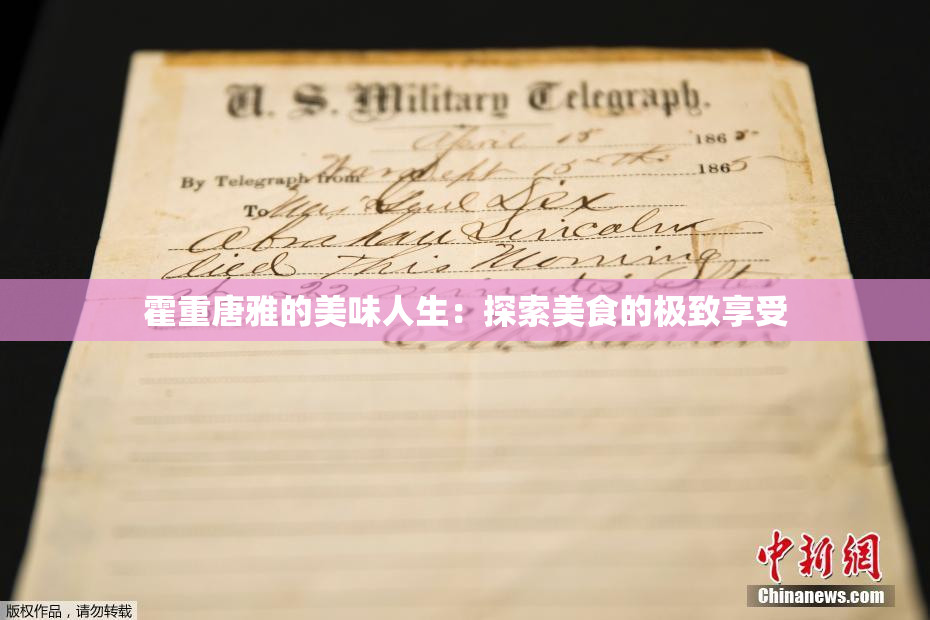 U. S. Military Telegraph.
April 15 1865
By Telegraph from War Dept 15th 1865
To Maj Genl Dix
Abraham Lincoln
died This Morning
霍重唐雅的美味人生：探索美食的极致享受
22 minutes after
版权作品，请勿转载
中新网
Chinanews.com